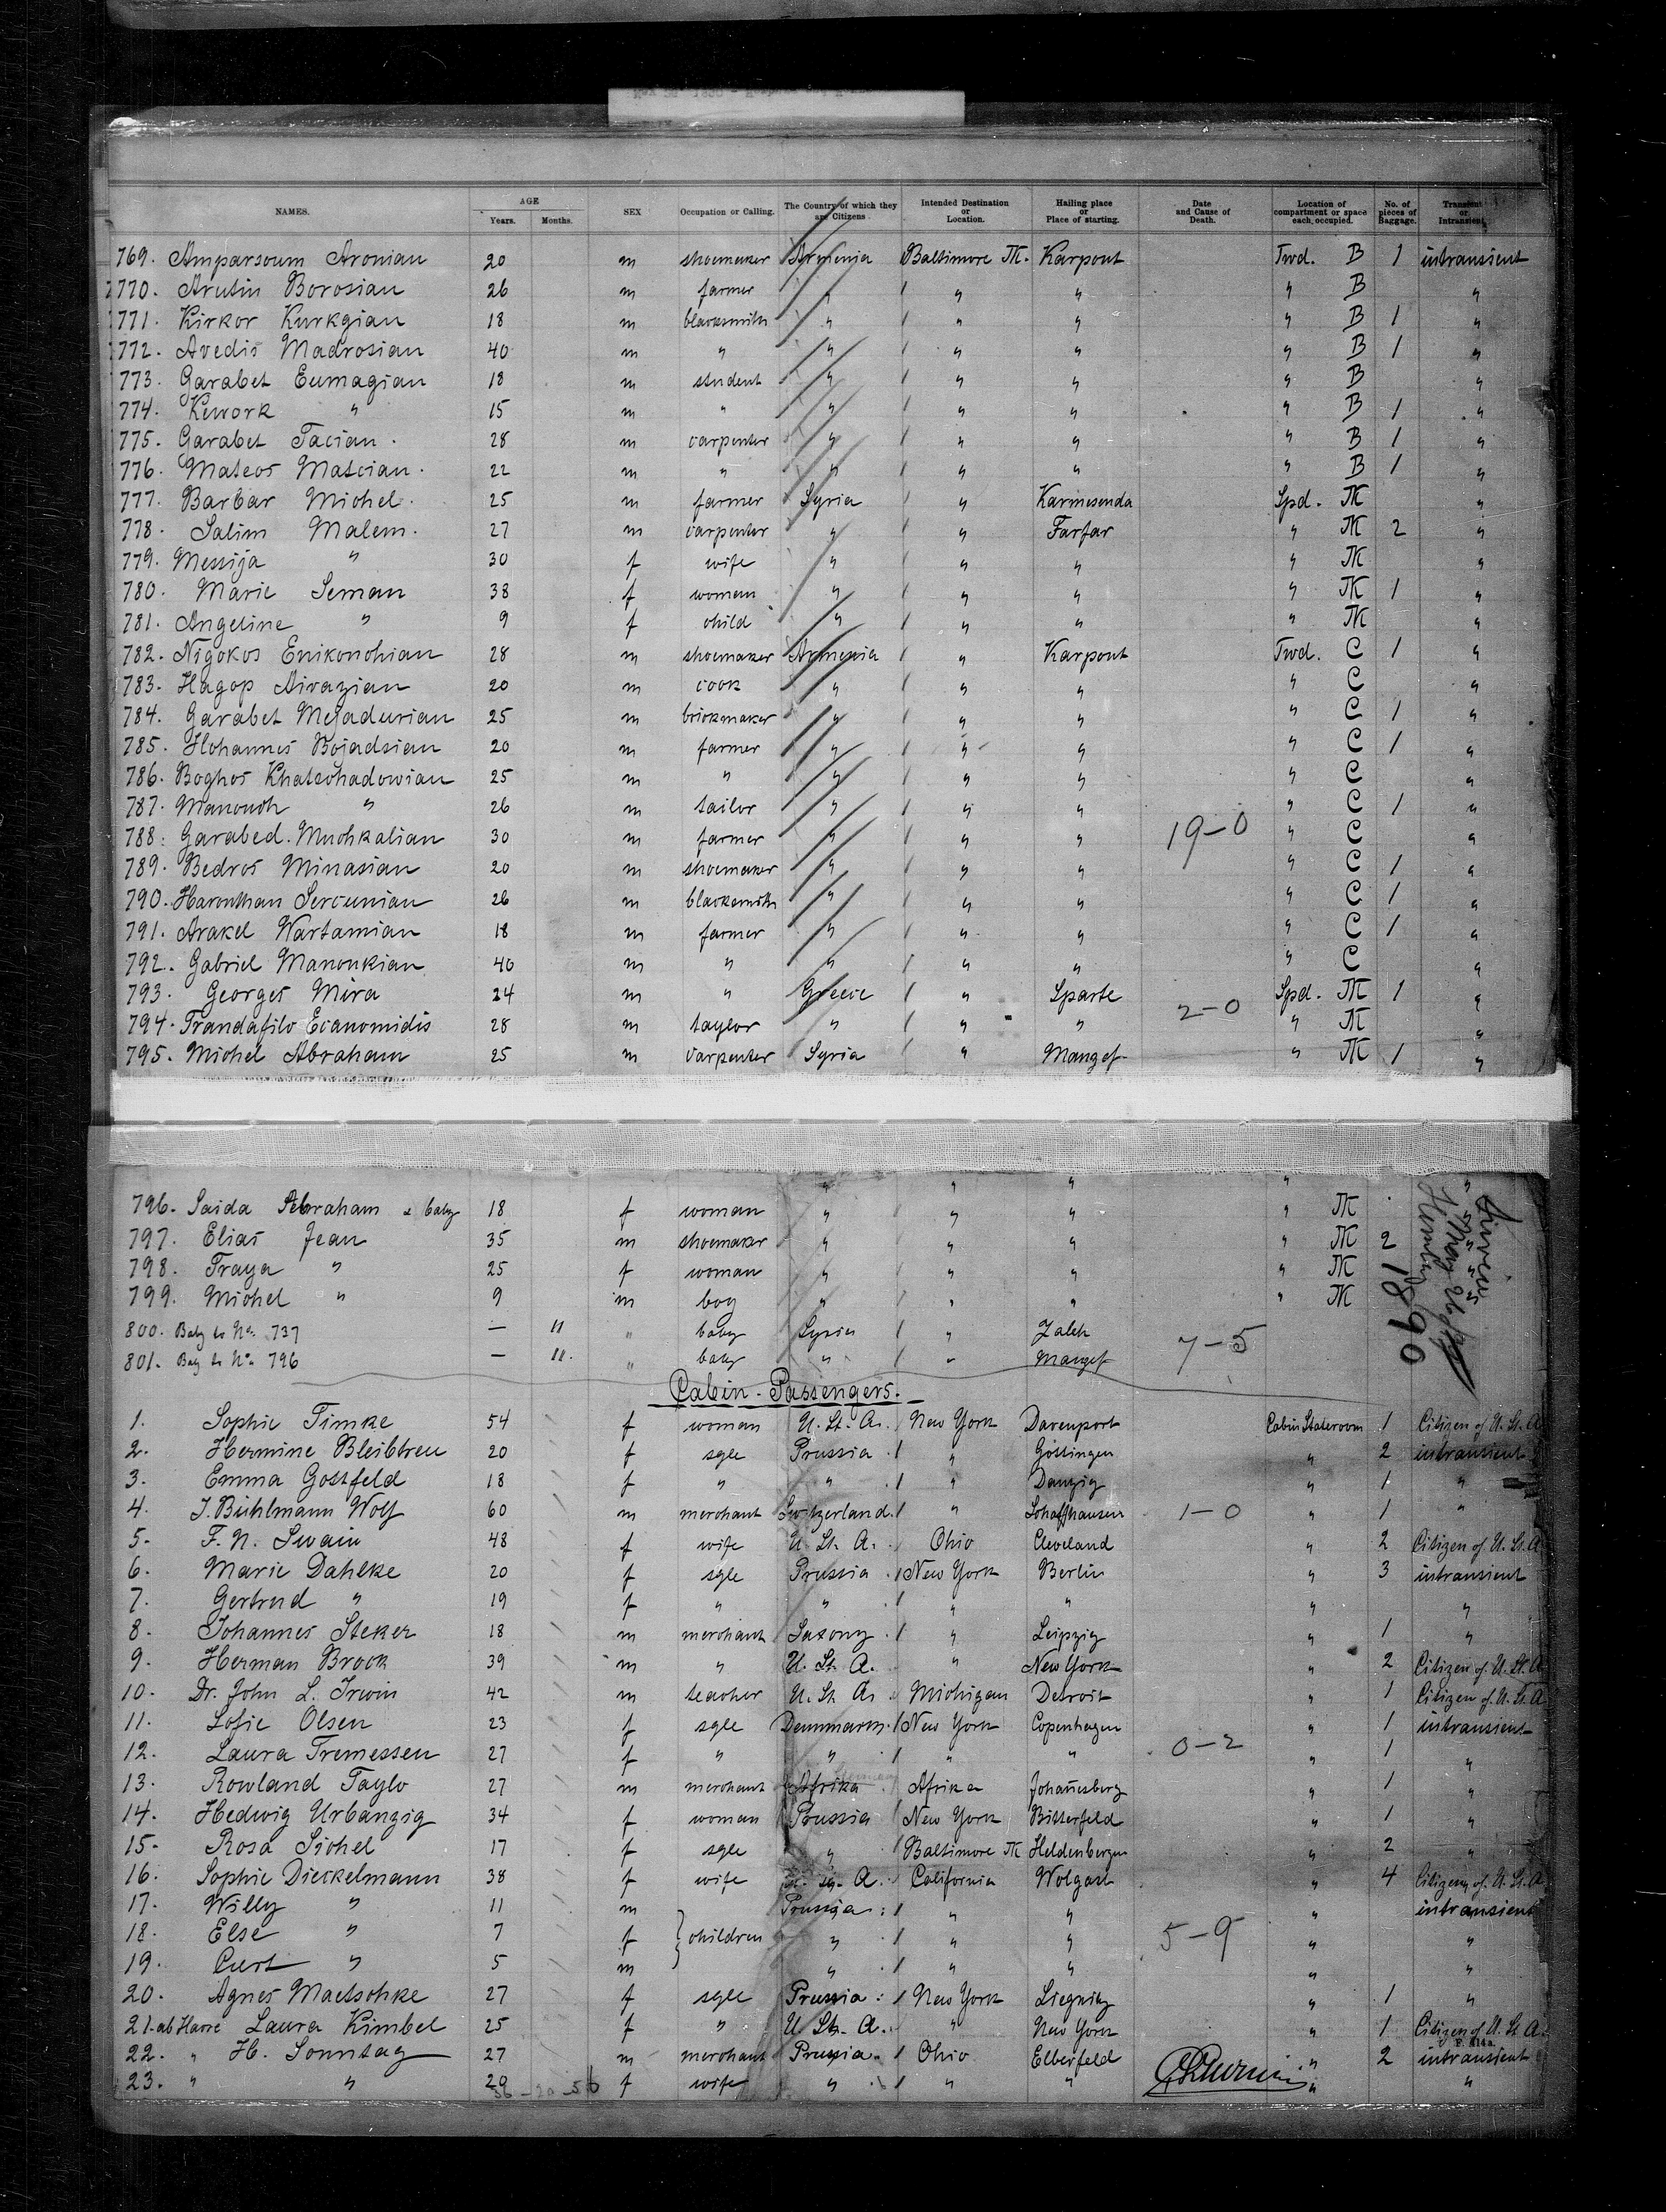 NAMES. AGE Years. Months. SEX Occupation or Calling. The Country of which they are Citizens Intended Destination or Location. Hailing place or Place of starting. Date and Cause of Death. Location of compartment or space each occupied. No. of pieces of Baggage. Transient or Intransient
769. Amparsoum Aronian 20 m shoemaker Armenia Baltimore M. Karpout Twd. B 1 intransient
770. Arutin Borosian 26 m farmer " " " " B "
771. Kirkor Kurkgian 18 m blacksmith " " " " B 1 "
772. Avedis Madrosian 40 m " " " " " B 1 "
773. Garabet Eumagian 18 m student " " " " B "
774. Kework " 15 m " " " " " B 1 "
775. Garabet Tacian. 28 m carpenter " " " " B 1 "
776. Mateos Matcian. 22 m " " " " " B 1 "
777. Barbar Michel. 25 m farmer Syria " Karmesenda Spd. M "
778. Salim Malem. 27 m carpenter " " Farfar " M 2 "
779. Messija " 30 f wife " " " " M "
780. Marie Seman 38 f woman " " " " M 1 "
781. Angeline " 9 f child " " " " M "
782. Nigokos Enikonchian 28 m shoemaker Armenia " Karpout Twd. C 1 "
783. Hagop Aivazian 20 m cook " " " " C "
784. Garabet Megadurian 25 m brickmaker " " " " C 1 "
785. Hohannes Bojadsian 20 m farmer " " " " C 1 "
786. Boghos Khatschadowian 25 m " " " " " C "
787. Manouch " 26 m tailor " " " " C 1 "
788. Garabed. Muchkalian 30 m farmer " " " 19-0 " C "
789. Bedros Minasian 20 m shoemaker " " " " C 1 "
790. Harouthan Sercunian 26 m blacksmith " " " " C 1 "
791. Arakel Wartamian 18 m farmer " " " " C 1 "
792. Gabriel Manoukian 40 m " " " " " C "
793. Georges Mira 24 m " Greece " Sparte Spd. M 1 "
794. Trandafilo Ecanomidis 28 m taylor " " " 2-0 " M "
795. Michel Abraham 25 m carpenter Syria " Mangef " M 1 "
" " " " "
796. Saida Abraham & baby 18 f woman " " " " M
797. Elias Jean 35 m shoemaker " " " " M 2
798. Traya " 25 f woman " " " " M
799. Michel " 9 m boy " " " " M
1890
800. Baby to No. 737 — 11 " baby Syria " Zaleh
801. Baby to No. 796 — 11. " baby " " Mangef 7-5
Cabin-Passengers.
1. Sophie Timke 54 f woman U. St. A. New York Davenport Cabin Stateroom 1 Citizen of U. St. A
2. Hermine Bleibtreu 20 f sgle Prussia " Göttingen " 2 intransient
3. Emma Gottfeld 18 f " " " Danzig " 1 "
4. J. Bühlmann Wolf 60 m merchant Switzerland " Schaffhausen 1-0 " 1 "
5. F. N. Swain 48 f wife U. St. A. Ohio Cleveland " 2 Citizen of U. St. A
6. Marie Dahlke 20 f sgle Prussia New York Berlin " 3 intransient
7. Gertrud " 19 f " " " " " "
8. Johannes Steker 18 m merchant Saxony " Leipzig " 1 "
9. Herman Brock 39 m " U. St. A. " New York " 2 Citizen of. U. St. A
10. Dr. John L. Irwin 42 m teacher U. St. A. Michigan Detroit " 1 Citizen of. U. St. A
11. Sofie Olsen 23 f sgle Dennmark. New York Copenhagen " 1 intransient
12. Laura Tremessen 27 f " " " " 0-2 " 1 "
13. Rowland Taylo 27 m merchant Afrika Afrika Johañesberg " 1 "
14. Hedwig Urbanzig 34 f woman Prussia New York Bitterfeld " 1 "
15. Rosa Sichel 17 f sgle " Baltimore M Heldenbergen " 2 "
16. Sophie Dieckelmann 38 f wife U. St. A. California Wolgast " 4 Citizen of. U. St. A
17. Willy " 11 m Prussia " " " intransient
18. Else " 7 f children " " " 5-9 " "
19. Curt " 5 m " " " " "
20. Agnes Maetschke 27 f sgle Prussia New York Liegnitz " 1 "
21. ab Havre Laura Kimbel 25 f " U. St. A. " New York " 1 Citizen of U. St A.
22. " H. Sonntag 27 m merchant Prussia Ohio Elberfeld " 2 intransient
23. " " 29 f wife " " " " "